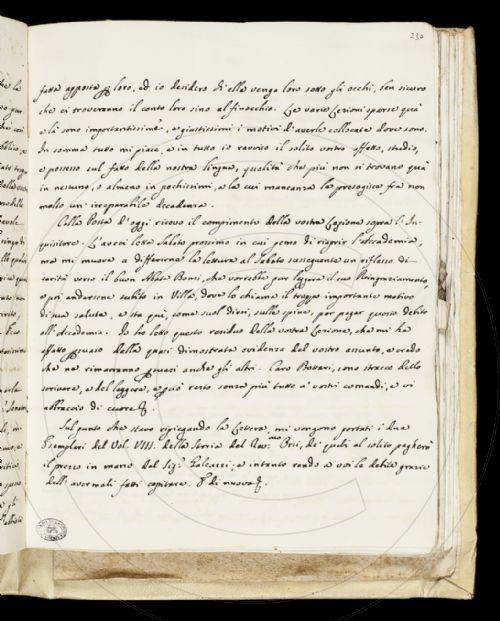 230
fatta apposta p loro, ed io desidero di ella venga loro sotto gli occhi, ben sicuro
che ci troveranno il conto loro sino al finocchio. Le varie Lezioni sparse quà
e là sono importantissime, e giustissimi i motivi d'averle collocate dove sono.
In somma tutto mi piace, e in tutto io ravviso il solito vostro affetto, studio,
e possesso sul fatto della nostra lingua, qualità che più non si trovano quà
in nessuno, o almeno in pochissimi, e la cui mancanza la presagisce fra non
molto un irreparabile decadenza.
Colla Posta d'oggi ricevo il compimento della vostra Lezione sopra l'In-
quisitore. L'avrei letta Sabato prossimo in cui penso di riaprir l'Accademia,
ma mi muove a differirne la lettura al Sabato susseguente un riflesso di
carità verso il buon Abate Bonsi, che vorrebbe pur leggere il suo Ringraziamento,
e poi andarsene subito in Villa, dove lo chiama il troppo importante motivo
di sua salute, e sta quì, come suol dirsi, sulle spine, per pagar questo debito
all'Accademia. Io ho letto questo residuo della vostra Lezione, che mi ha
affatto persuaso della quasi dimostrata evidenza del vostro assunto, e credo
che ne rimarranno persuasi anche gli altri. Caro Bottari, sono stracco dello
scrivere, e del leggere, e però resto senza più tutto a' vostri comandi, e vi
abbraccio di cuore
Sul punto che stavo ripiegando la Lettera, mi vengono portati i due
Esemplari del Vol. VIII. della Storia del Rev.mo Orsi, de' quali al solito pagherò
il prezzo in mano del Sig. Galeazzi; e intanto rendo a voi le debite grazie
dell'avermeli fatti capitare. di nuovo